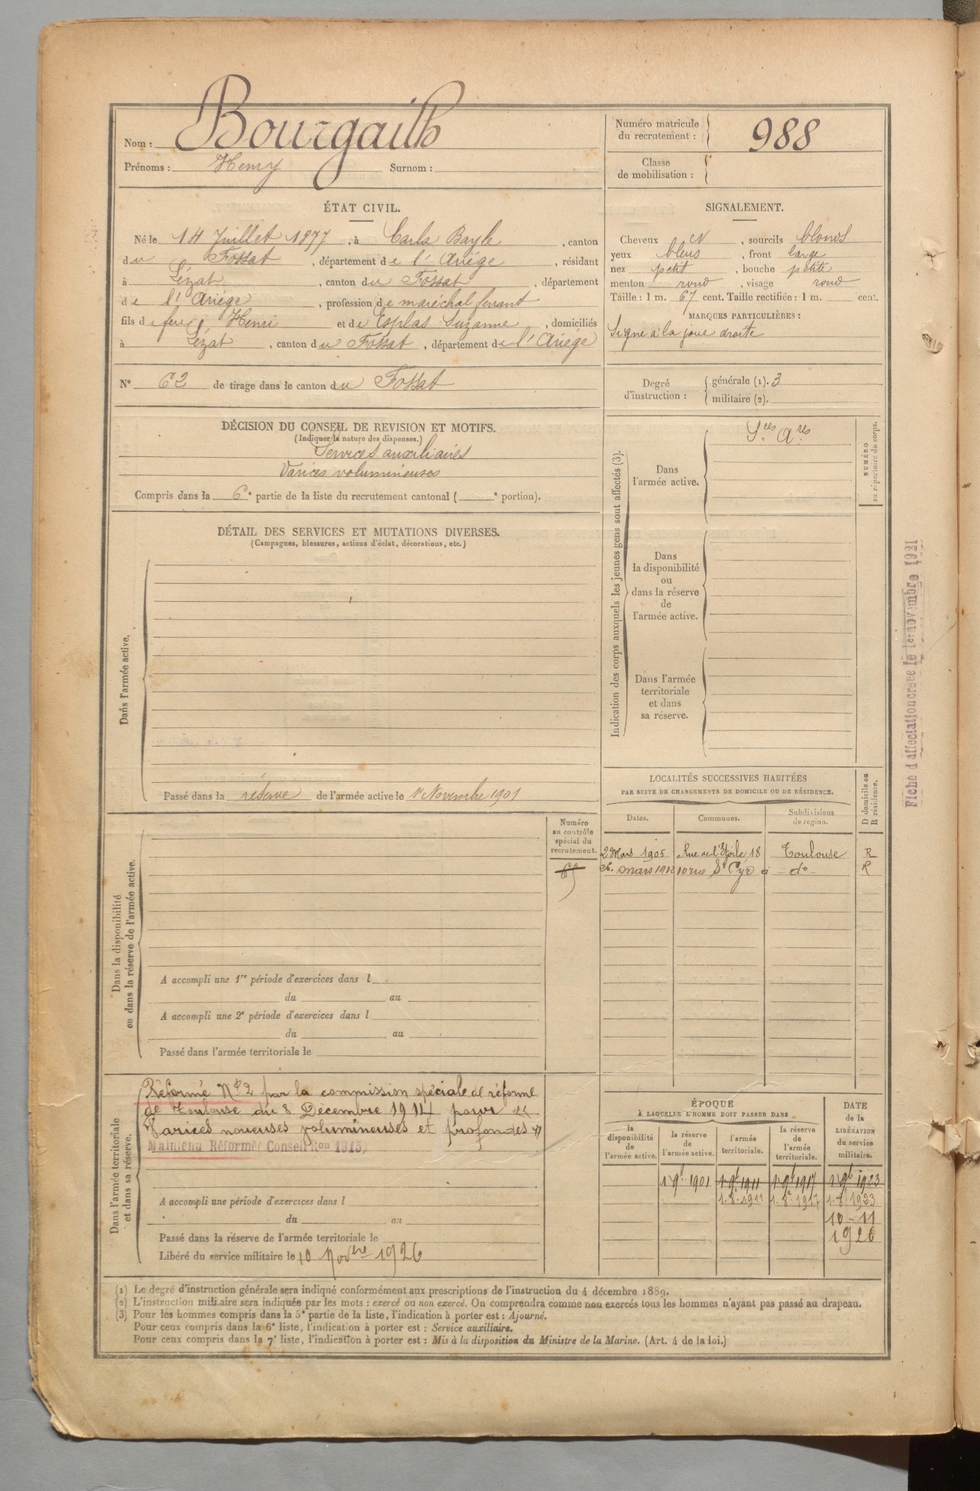 Nom : Bourgail
Prénoms : Henry Surnom :
Numéro matricule
du recrutement : 988
Classe
de mobilisation :
ÉTAT CIVIL.
Né le 14 Juillet 1877, à Carla Bayle, canton
du Fossat, département de l'Ariège, résidant
à Lézat, canton du Fossat, département
de l'Ariège, profession de maréchal ferrant
fils de feu Henri et de Esplas Suzanne, domiciliés
à Lézat, canton du Fossat, département de l'Ariège
N° 62 de tirage dans le canton du Fossat
SIGNALEMENT.
Cheveux ch, sourcils blonds
yeux bleus, front large
nez petit, bouche petite
menton rond, visage rond
Taille : 1 m. 67 cent. Taille rectifiée : 1 m. cent.
MARQUES PARTICULIÈRES :
Signe à la joue droite
Degré
d'instruction :
générale (1). 3
militaire (2).
DÉCISION DU CONSEIL DE REVISION ET MOTIFS.
(Indiquer la nature des dispenses.)
Services auxiliaires
Varices volumineuses
Compris dans la 6e partie de la liste du recrutement cantonal ( e portion).
DÉTAIL DES SERVICES ET MUTATIONS DIVERSES.
(Campagnes, blessures, actions d'éclat, décorations, etc.)
Dans l'armée active.
Passé dans la réserve de l'armée active le 1er Novembre 1901
Indication des corps auxquels les jeunes gens sont affectés (3).
Sces Ares
Dans
l'armée active.
Dans
la disponibilité
ou
dans la réserve
de
l'armée active.
Dans l'armée
territoriale
et dans
sa réserve.
NUMÉRO
au répertoire du corps.
Fiche d'affectation créée le 1er novembre 1921
LOCALITÉS SUCCESSIVES HABITÉES
PAR SUITE DE CHANGEMENTS DE DOMICILE OU DE RÉSIDENCE.
D domicile ou
R résidence.
Dates. Communes. Subdivisions
de région.
2 Mars 1905 Rue de l'Etoile 18 Toulouse R
mars 1912 10 rue St Cyr do R
Dans la disponibilité
ou dans la réserve de l'armée active.
Numéro
au contrôle
spécial du
recrutement.
A accompli une 1re période d'exercices dans l
du au
A accompli une 2e période d'exercices dans l
du au
Passé dans l'armée territoriale le
Dans l'armée territoriale
et dans sa réserve.
Réformé N° 2 par la commission spéciale de réforme
de Toulouse du 8 Décembre 1914 pour
Varices noueuses volumineuses et profondes
Maintenu Réformé Conseil Ron 1915
A accompli une période d'exercices dans l
du au
Passé dans la réserve de l'armée territoriale le
Libéré du service militaire le 10 Novbre 1926
ÉPOQUE
À LAQUELLE L'HOMME DOIT PASSER DANS
la
disponibilité
de
l'armée active.
la réserve
de
l'armée active.
l'armée
territoriale.
la réserve
de
l'armée
territoriale.
DATE
de la
LIBÉRATION
du service
militaire.
1 9b 1901 1 9b 1911 1 9b 1917 1 9b 1923
10-11
1926
(1) Le degré d'instruction générale sera indiqué conformément aux prescriptions de l'instruction du 4 décembre 1889.
(2) L'instruction militaire sera indiquée par les mots : exercé ou non exercé. On comprendra comme non exercés tous les hommes n'ayant pas passé au drapeau.
(3) Pour les hommes compris dans la 5e partie de la liste, l'indication à porter est : Ajourné.
Pour ceux compris dans la 6e liste, l'indication à porter est : Service auxiliaire.
Pour ceux compris dans la 7e liste, l'indication à porter est : Mis à la disposition du Ministre de la Marine. (Art. 4 de la loi.)